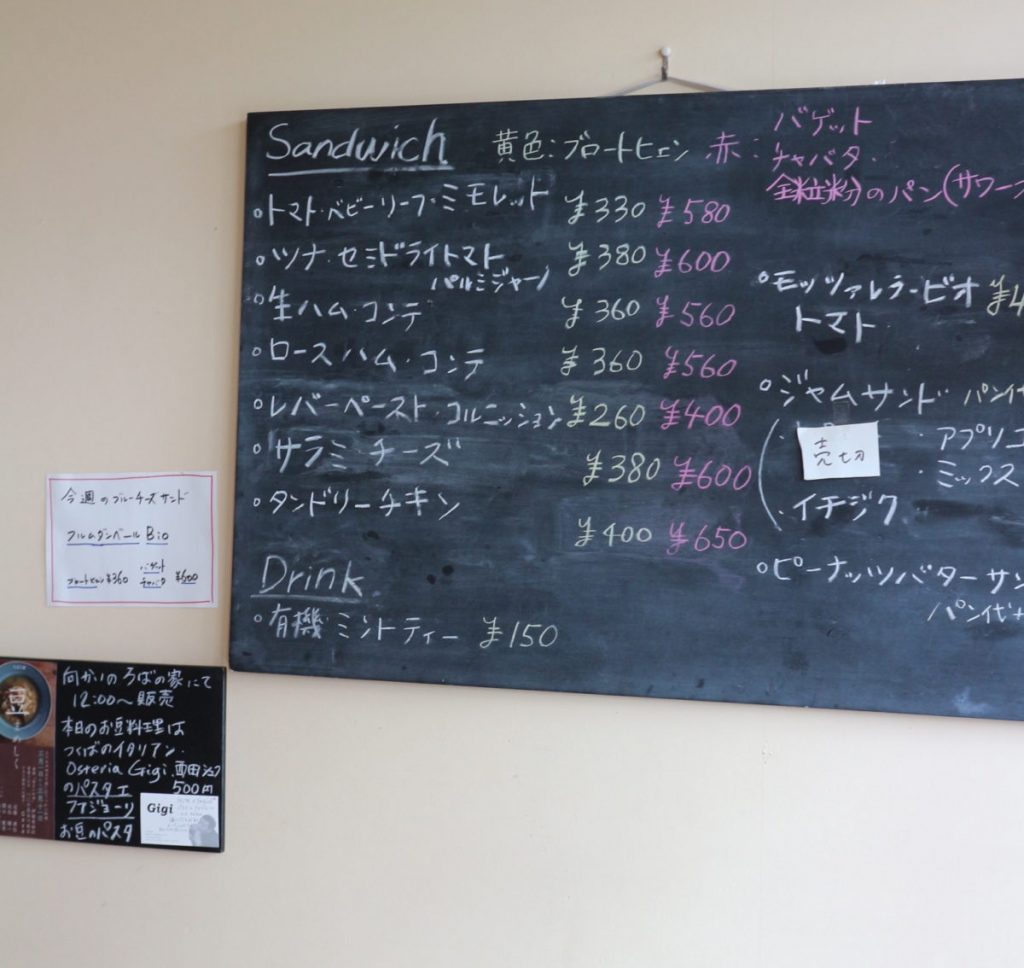 Sandwich 黄色:ブロートヒェン 赤: バゲット
チャバタ・
全粒粉のパン(サワー
。トマト・ベビーリーフ・ミモレット ¥330 ¥580
。ツナ・セミドライトマト ¥380 ¥600
パルミジャーノ
。生ハム・コンテ ¥360 ¥560
。ロースハム・コンテ ¥360 ¥560
。レバーペースト・コルニッション ¥260 ¥400
。サラミ・チーズ ¥380 ¥600
。タンドリーチキン ¥400 ¥650
Drink
。有機ミントティー ¥150
。モッツァレラ・ビオ ¥4
トマト
。ジャムサンド パン代
売切 ・アプリコ
・ミックス
・イチジク
。ピーナッツバターサン
パン代+
今週のブルーチーズサンド
フルムダンベール Bio
ブロートヒェン ¥360 バゲット
チャバタ ¥600
向かいのろばの家にて
12:00〜販売
本日のお豆料理は
つくばのイタリアン・
Osteria Gigi 西田シェフ
のパスタエ 500円
ファジョーリ
お豆のパスタ
Gigi
豆